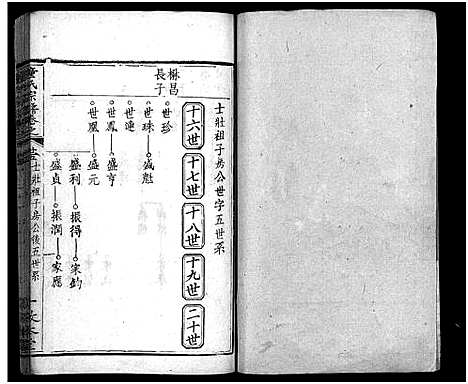 士壯祖子房公世字五世系
十六世
十七世
十八世
十九世
二十世
楙昌
長子
世珍
世珠
盛魁
世連
世鳳
盛亨
世鳳
盛元
盛利
振得
家鈞
盛貞
振潤
家應
氏宗
卷之
士壯祖子房公後五世系